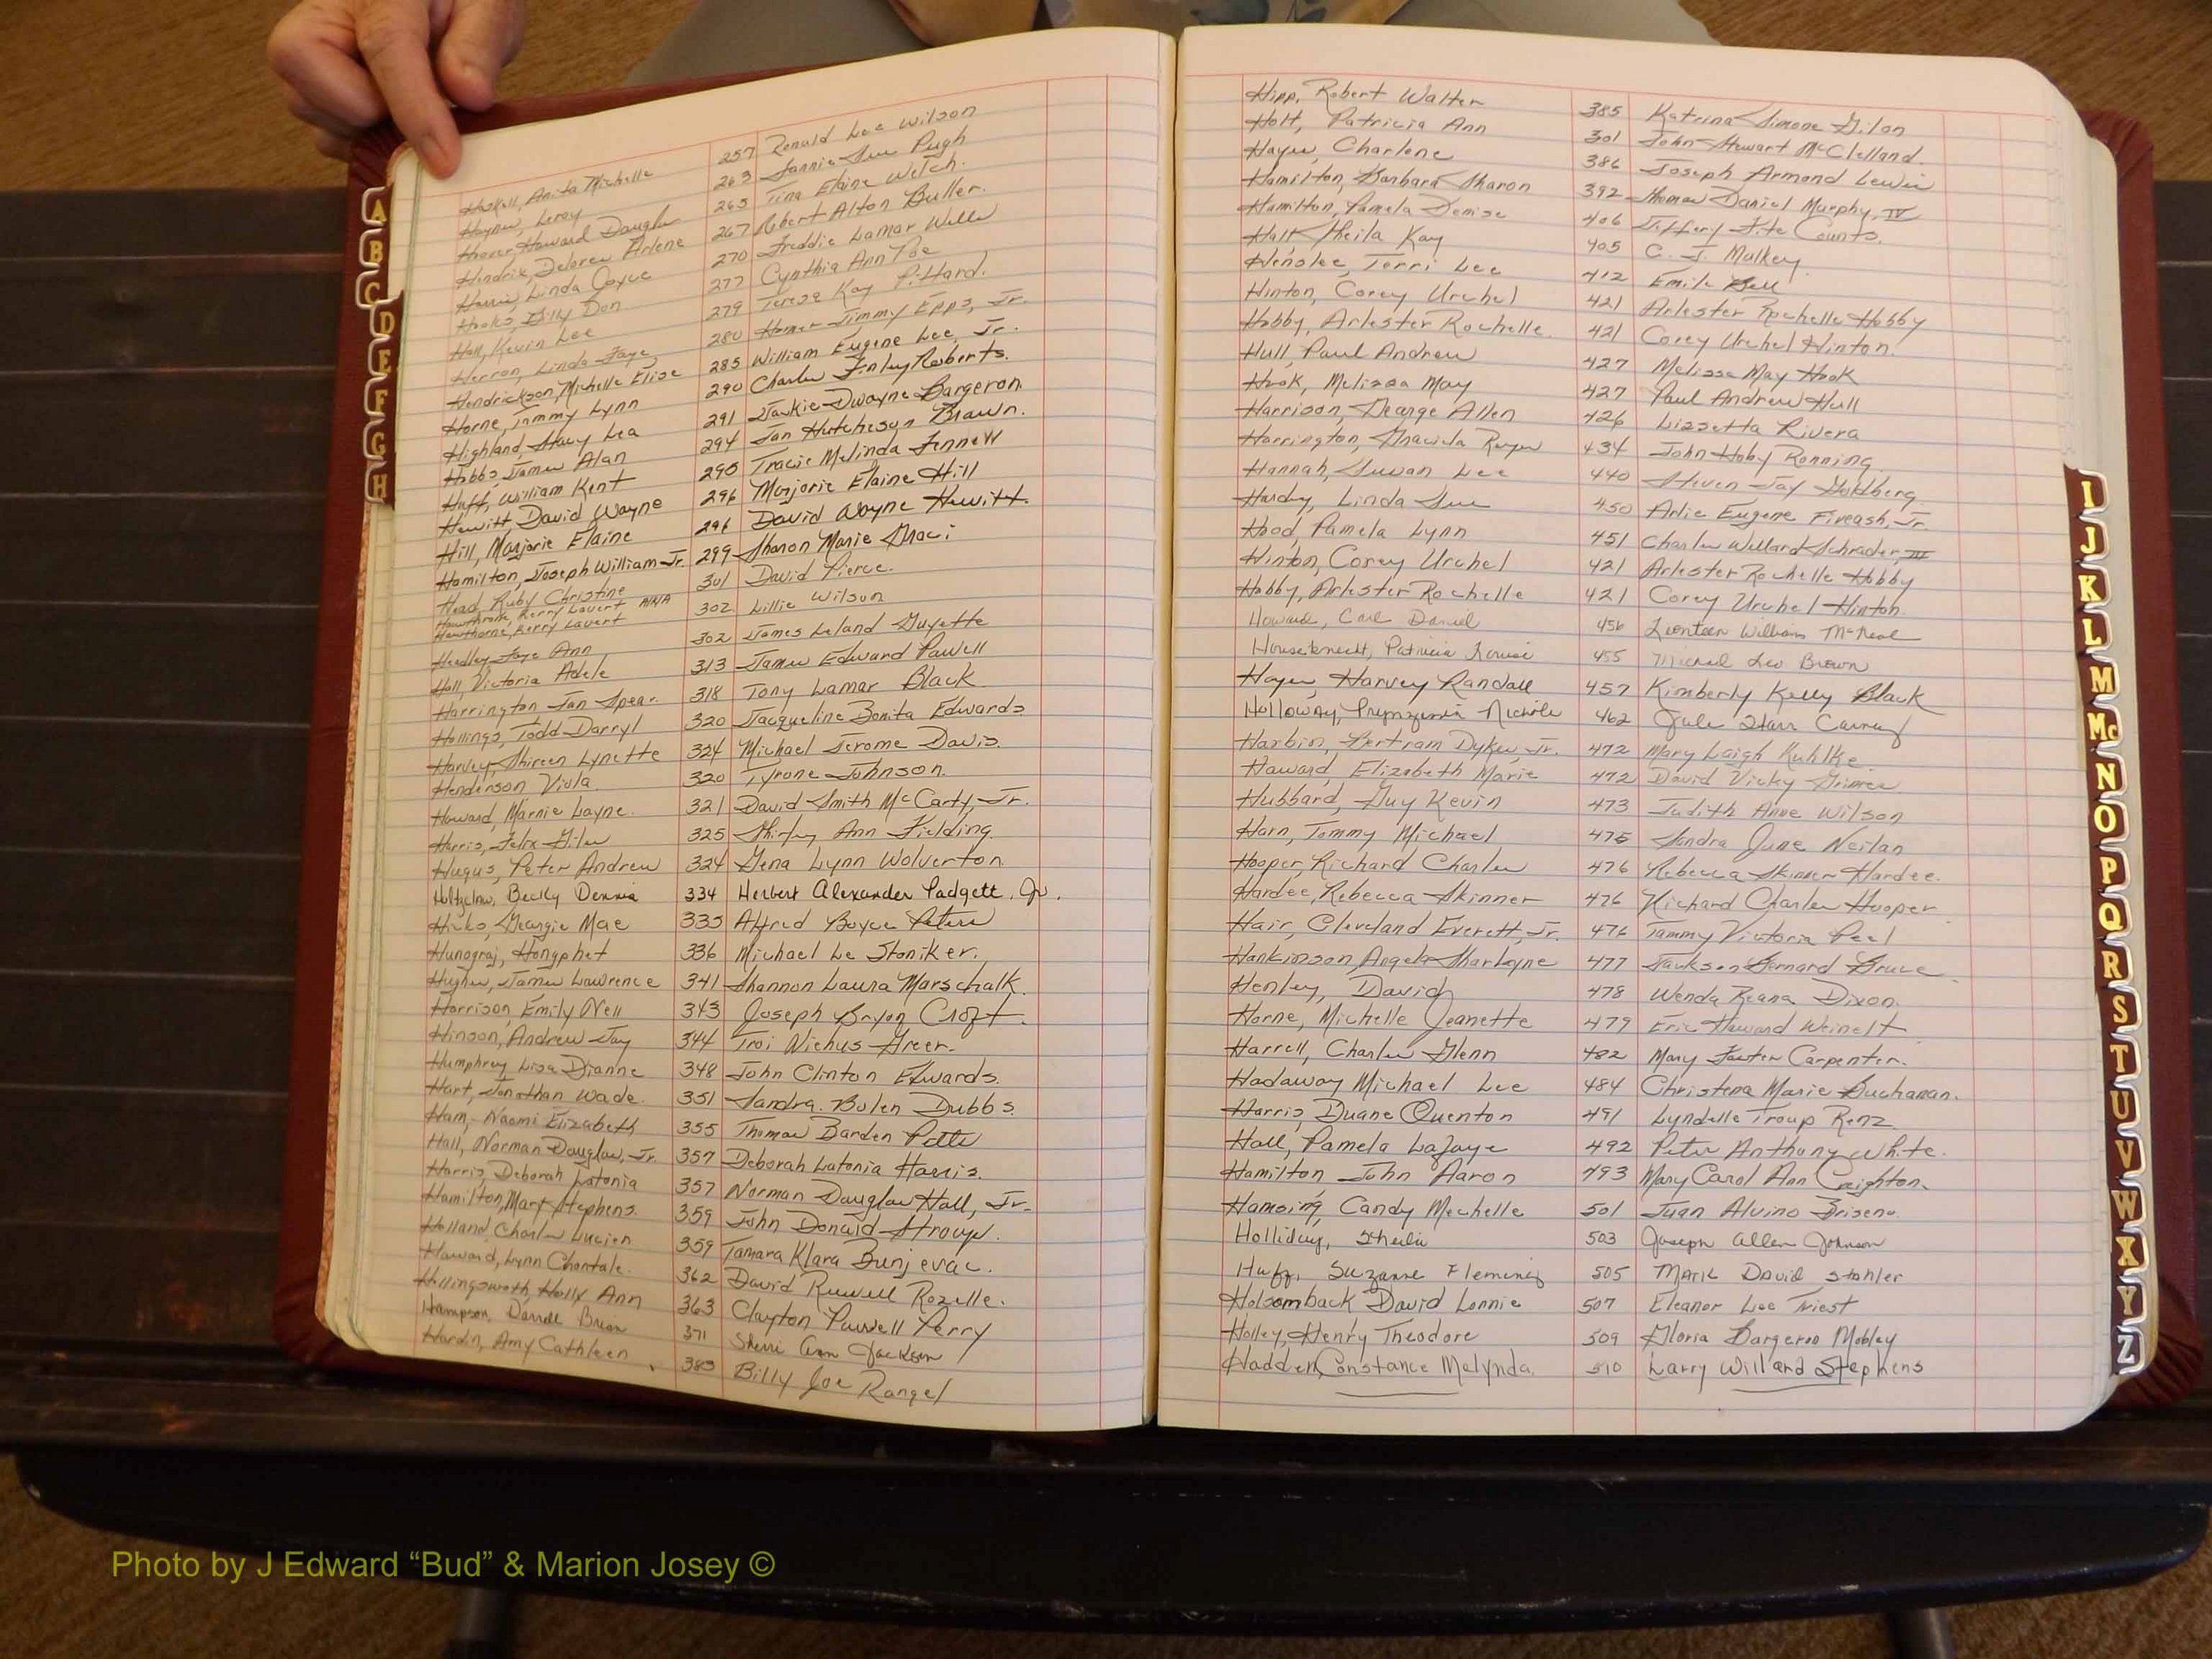 Haskell, Anita Michelle 257 Ronald Lee Wilson
Haynes, Leroy 263 Fannie Sue Pugh
Hoover, Howard Douglas 265 Tina Elaine Welch.
Hendrix, Delores Arlene 267 Robert Alton Buller.
Harris, Linda Joyce 270 Freddie Lamar Wells
Hooks, Billy Don 277 Cynthia Ann Poe
Hall, Kevin Lee 279 Teresa Kay Pittard.
Herron, Linda Faye, 280 Homer Jimmy Epps, Jr.
Hendrickson, Michelle Elise 285 William Eugene Lee, Jr.
Horne, Tommy Lynn 290 Charles Finley Roberts.
Highland, Stacy Lea 291 Jackie Dwayne Bargeron.
Hobbs, James Alan 294 Jan Hutcheson Brawn.
Huff, William Kent 295 Tracie Melinda Fennell
Hewitt, David Wayne 296 Marjorie Elaine Hill
Hill, Marjorie Elaine 296 David Wayne Hewitt.
Hamilton, Joseph William Jr. 299 Sharon Marie Graci
Head, Ruby Christine 301 David Pierce.
Hawthrone, Kerry Lavert AKA
Hawthorne, Kerry Lavert 302 Lillie Wilson
Headley, Faye Ann 302 James Leland Guyette
Hall, Victoria Adele 313 James Edward Powell
Harrington, Jan Spear. 318 Tony Lamar Black
Hollings, Todd Darryl 320 Jacqueline Bonita Edwards
Harvey, Shireen Lynette 324 Michael Jerome Davis.
Henderson Viola. 320 Tyrone Johnson.
Howard, Marnie Layne. 321 David Smith McCarty, Jr.
Harris, Felix Giles 325 Shirley Ann Fielding
Hugus, Peter Andrew 324 Gena Lynn Wolverton.
Holtzclaw, Becky Dennis 334 Herbert Alexander Padgett, Jr.
Hicks, Georgie Mae 335 Alfred Boyce Peters
Hunograj, Hongphet 336 Michael Le Stoniker.
Hughes, James Lawrence 341 Shannon Laura Marschalk.
Harrison, Emily Nell 343 Joseph Bryon Croft.
Hinson, Andrew Jay 344 Troi Niehus Greer.
Humphrey, Lisa Dianne 348 John Clinton Edwards.
Hart, Jonathan Wade. 351 Sandra Bolen Dubbs.
Ham, Naomi Elizabeth 355 Thomas Barden Potts
Hall, Norman Douglas, Jr. 357 Deborah Latonia Harris.
Harris, Deborah Latonia 357 Norman Douglas Hall, Jr.
Hamilton, Mary Stephens. 359 John Donald Stroup.
Holland, Charles Lucien 359 Tamara Klara Bunjevac.
Howard, Lynn Chantale. 362 David Russell Rozelle.
Hillingsworth, Holly Ann 363 Clayton Powell Perry
Hampson, Darrell Brian 371 Sherri Ann Jackson
Hardin, Amy Cathleen 383 Billy Joe Rangel
Hipp, Robert Walter 385 Katrina Simone Gilon
Holt, Patricia Ann 301 John Stewart McClelland.
Hayes, Charlene 386 Joseph Armond Lewis
Hamilton, Barbara Sharon 392 Thomas Daniel Murphy, IV
Hamilton, Pamela Denise 406 Jeffery Fite Counts.
Hall Sheila Kay 405 C. J. Mulkey.
Henslee, Terri Lee 412 Emile Bell
Hinton, Corey Urchel 421 Arlester Rochelle Hobby
Hobby, Arlester Rochelle. 421 Corey Urchel Hinton.
Hull, Paul Andrew 427 Melissa May Hook
Hook, Melissa May 427 Paul Andrew Hull
Harrison, George Allen 426 Lissetta Rivera
Harrington, Graciela Reyes 434 John Hoby Ronning
Hannah, Susan Lee 440 Steven Jay Goldberg
Hardy, Linda Sue 450 Arlie Eugene Fireash, Jr.
Hood, Pamela Lynn 451 Charles Willard Schrader, III
Hinton, Corey Urchel 421 Arlester Rochelle Hobby
Hobby, Arlester Rochelle 421 Corey Urchel Hinton.
Howard, Carl Daniel 456 William McNeal
Houseknecht, Patricia Louise 455 Michael Leo Brown
Hayes, Harvey Randall 457 Kimberly Kelly Black
Holloway, Nichole 462 Starr
Harbin, Bertram Dykes, Jr. 472 Mary Leigh Kuhlke.
Howard, Elizabeth Marie 472 David Vicky Grimes
Hubbard, Guy Kevin 473 Judith Anne Wilson
Harn, Tommy Michael 475 Sandra June Neilan
Hooper, Richard Charles 476 Rebecca Skinner Hardee.
Hardee, Rebecca Skinner 476 Richard Charles Hooper
Hair, Cleveland Everett, Jr. 476 Tammy Victoria Peel
Hankinson, Angela Sharlyne 477 Jackson Bernard Bruce
Henley, David 478 Wenda Reana Dixon.
Horne, Michelle Jeanette 479 Eric Howard Weinelt
Harrell, Charles Glenn 482 Mary Foster Carpenter.
Hadaway Michael Lee 484 Christena Marie Buchanan.
Harris, Duane Quenton 491 Lyndelle Troup Renz
Hall, Pamela LaJaye 492 Peter Anthony White.
Hamilton John Aaron 493 Mary Carol Ann Creighton.
Hansing, Candy Mechelle 501 Juan Alvino Briseno.
Holliday, Sheila 503 Joseph Allen Johnson
Huff, Suzanne Fleming 505 Mark David Stahler
Holsomback David Lonnie 507 Eleanor Lee Triest
Holley, Henry Theodore 509 Gloria Bargeron Mobley
Hadden, Constance Melynda. 510 Larry Willard Stephens
A
B
C
D
E
F
G
H
I
J
K
L
M
Mc
N
O
P
Q
R
S
T
U
V
W
X
Y
Z
Photo by J Edward “Bud” & Marion Josey ©